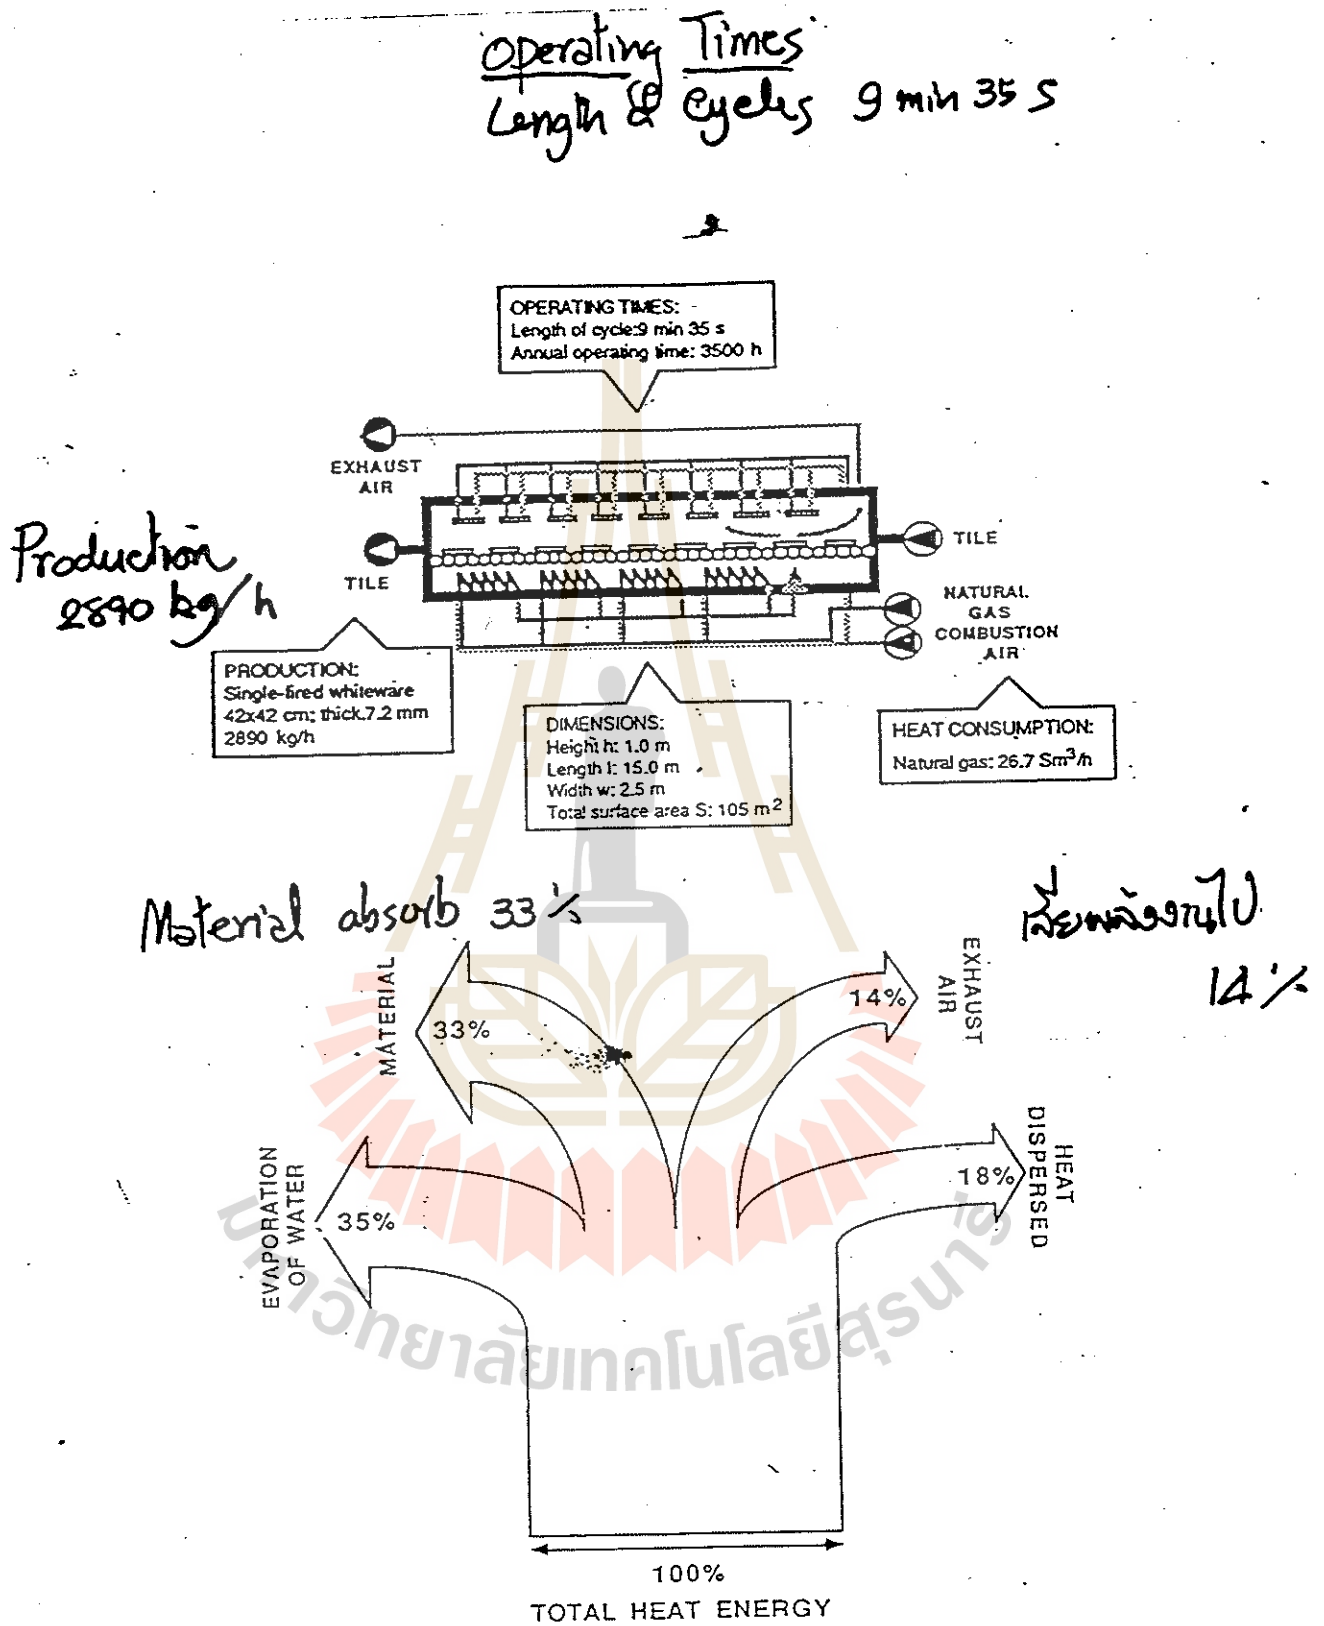 Operating Times
Length & Cycles 9 min 35 s
OPERATING TIMES:
Length of cycle:9 min 35 s
Annual operating time: 3500 h
EXHAUST
AIR
TILE
TILE
NATURAL
GAS
COMBUSTION
AIR
Production
2890 kg/h
PRODUCTION:
Single-fired whiteware
42x42 cm; thick.7.2 mm
2890 kg/h
DIMENSIONS:
Height h: 1.0 m
Length l: 15.0 m
Width w: 2.5 m
Total surface area S: 105 m²
HEAT CONSUMPTION:
Natural gas: 26.7 Sm³/h
Material absorb 33 %
เสียพลังงานไป
14 %
MATERIAL
33%
14%
EXHAUST
AIR
EVAPORATION
OF WATER
35%
18%
HEAT
DISPERSED
มหาวิทยาลัยเทคโนโลยีสุรนารี
100%
TOTAL HEAT ENERGY